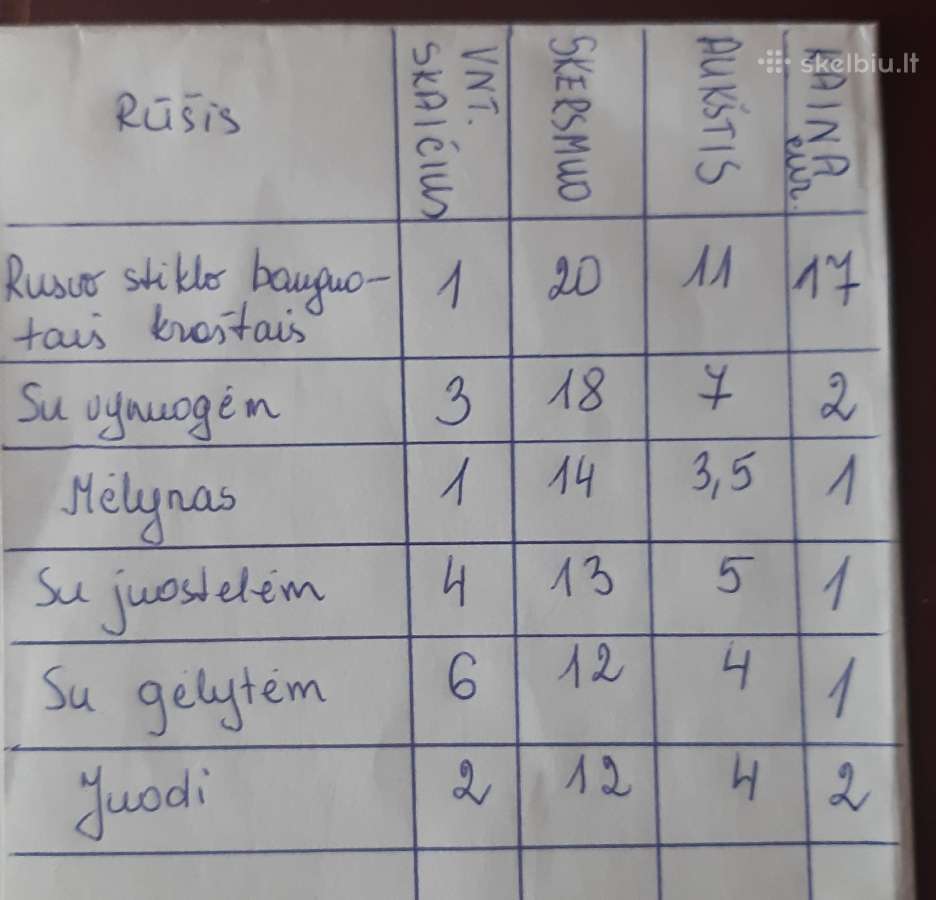 skelbiu.lt
RŪŠIS VNT. SKAIČIUS SKERSMUO AUKŠTIS KAINA eur.
Rusvo stiklo banguo- 1 20 11 17
tais kraštais
Su vynuogėm 3 18 7 2
Mėlynas 1 14 3,5 1
Su juostelėm 4 13 5 1
Su gėlytėm 6 12 4 1
Juodi 2 12 4 2